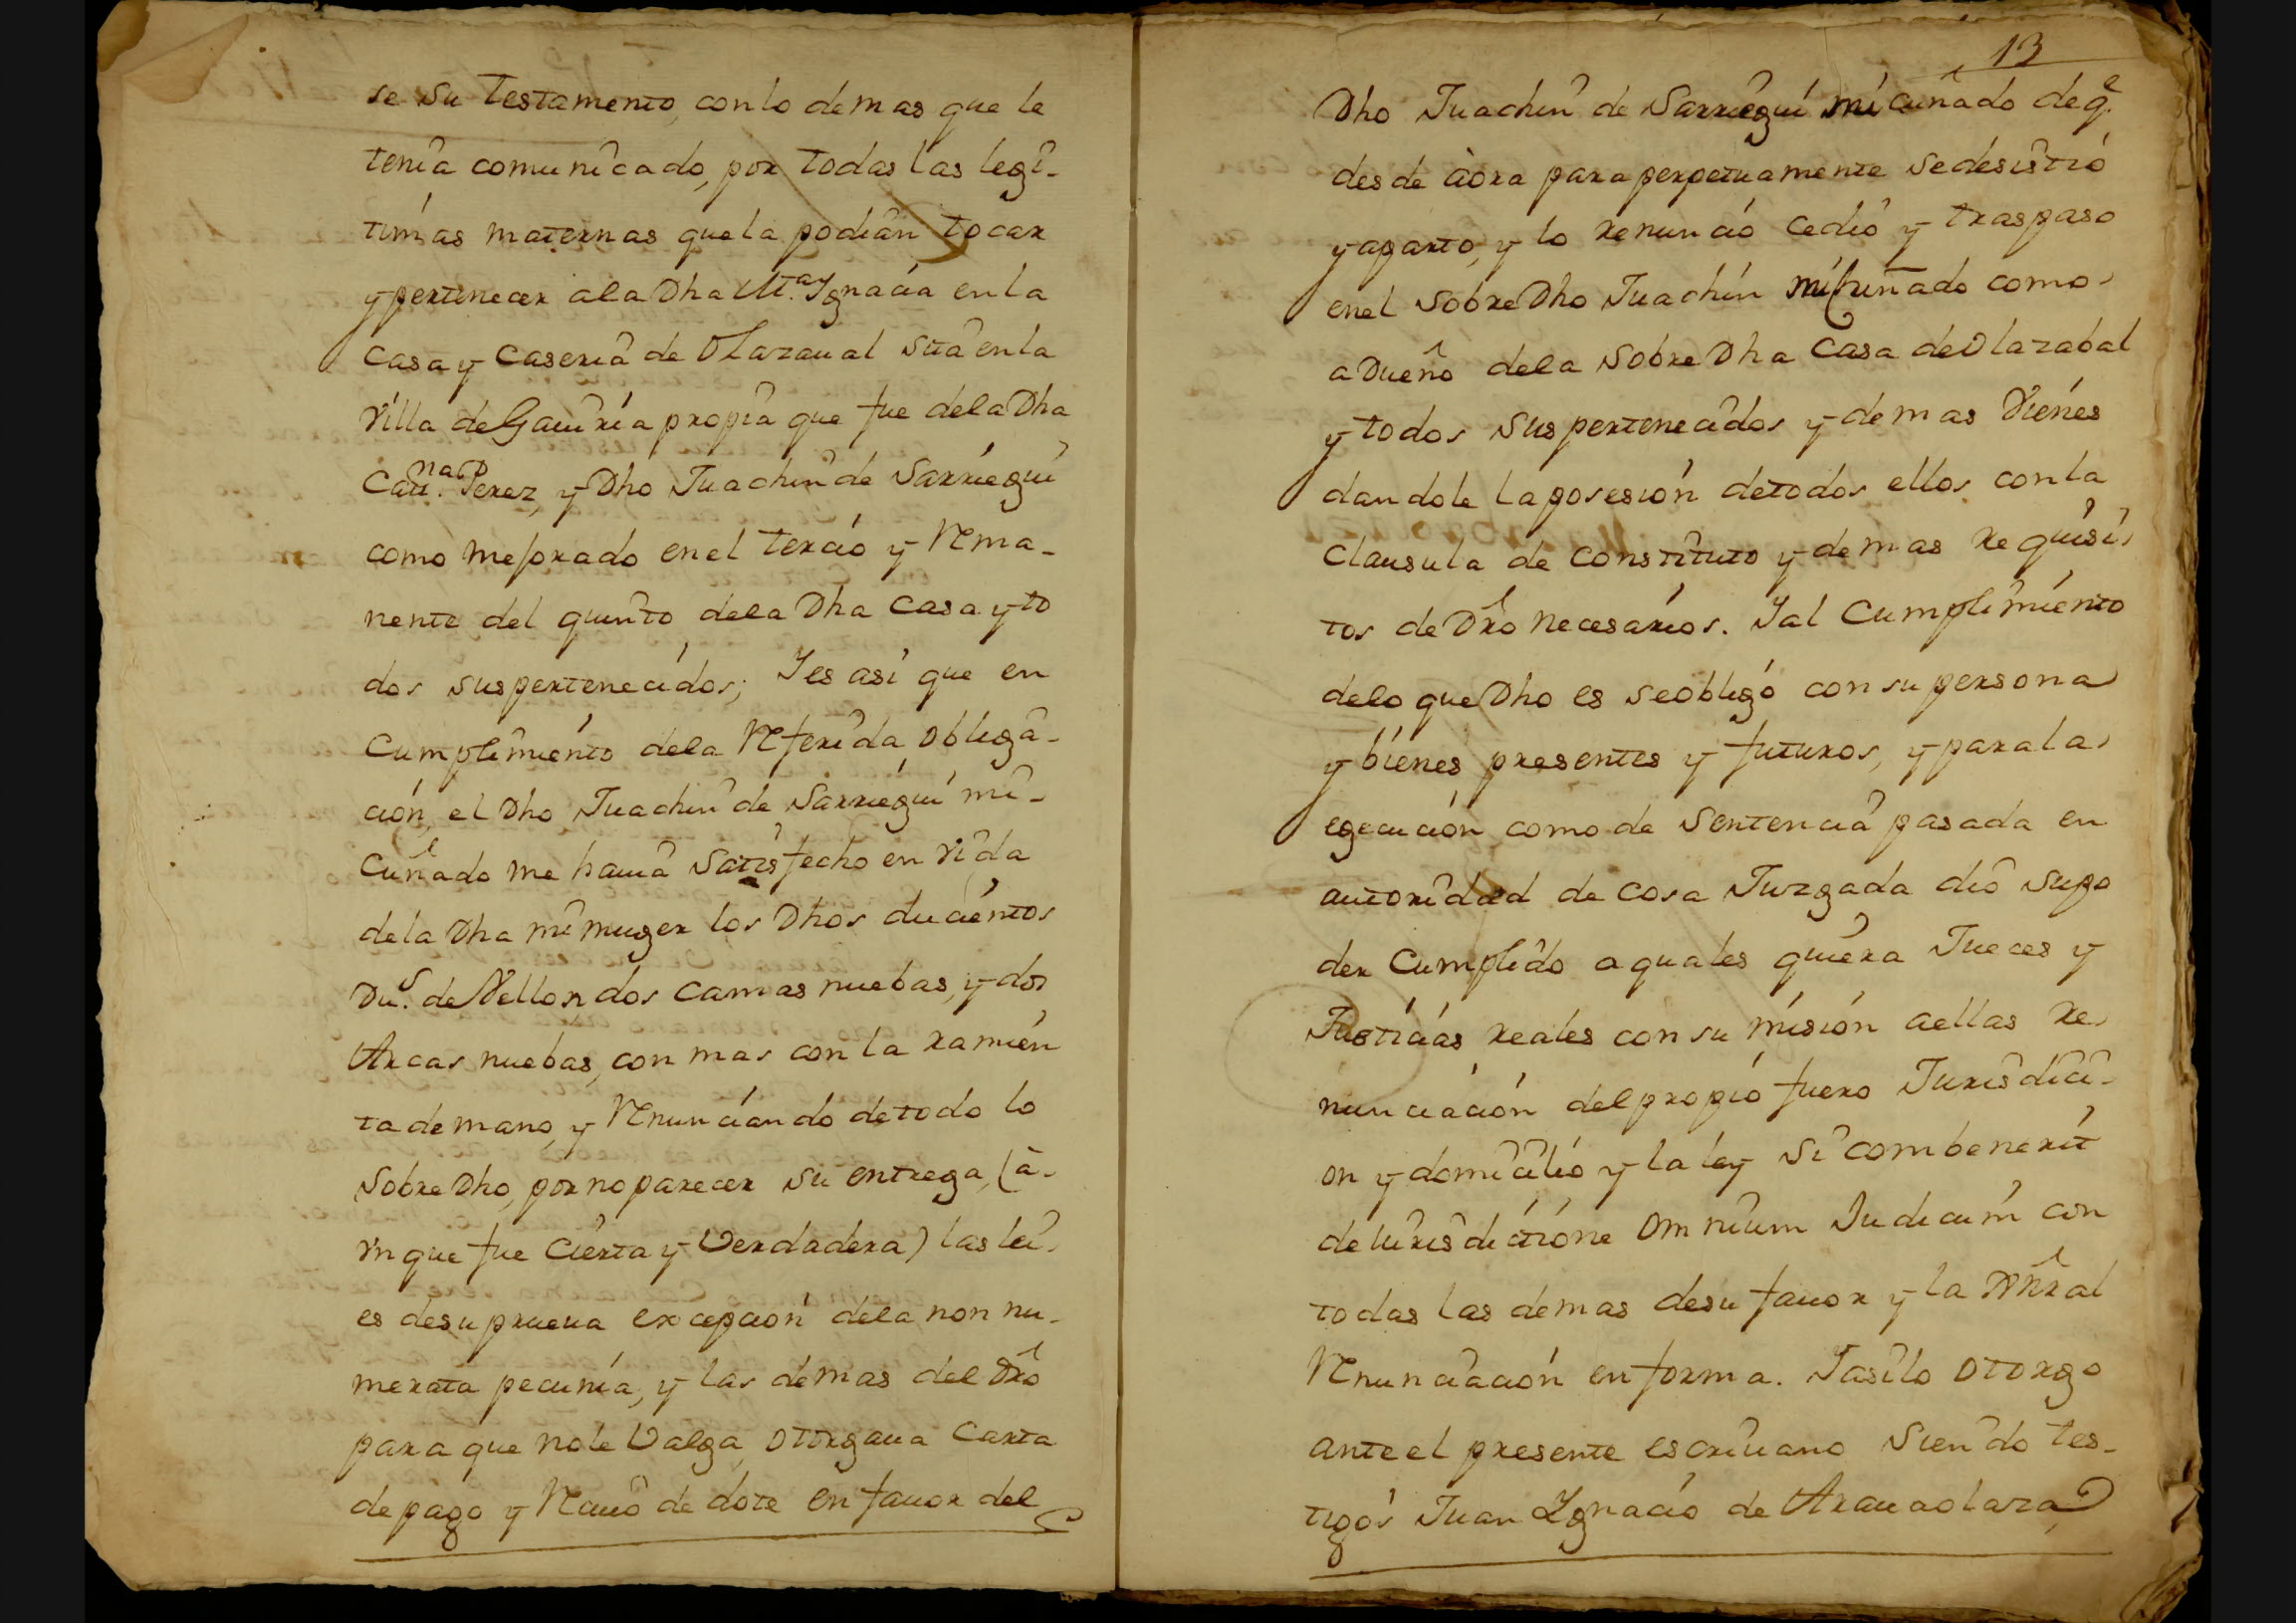 se su Testamento, con lo demas que le
tenia comunicado, por todas las legi-
timas maternas que la podian tocar
y pertenecer a la Dha M.ª Ygnacia en la
Casa y Caseria de Olazaual sita en la
Villa de Gauiria propia que fue de la Dha
Catt.na Perez, y Dho Juachin de Sarriegui
como mejorado en el tercio y Rema-
nente del quinto de la Dha Casa y to
dos sus pertenecidos; Y es asi que en
Cumplimiento de la Referida obliga-
ción, el Dho Juachin de Sarriegui mi-
Cuñado me hauia Satisfecho en vida
de la Dha mi muger los Dhos ducientos
Du.s de Vellon, dos Camas nuebas, y dos
Arcas nuebas, con mas con la ramien
ta de mano, y Renunciando de todo lo
Sobre Dho, por no parecer su entrega, (a-
vnque fue Cierta y Verdadera) las lei-
es de su prueua excepcion de la non nu-
merata pecunia, y las demas del Dro
para que no le Valga, otorgaua Carta
de pago y Reciuo de dote en fauor del
13
Dho Juachin de Sarriegui mi cuñado de q.e
desde àora para perpetuamente se desistió
y aparto, y lo renunció cedio y traspaso
en el Sobre Dho Juachin mi Cuñado como
a Dueño de la Sobre Dha Casa de Olazabal
y todos sus pertenecidos y demas Vienes
dandole la posesion de todos ellos con la
Clausula de Constituto y demas requisi-
tos de Dro necesarios. Y al Cumplimiento
de lo que Dho es se obligó con su persona
y bienes presentes y futuros, y para la
egecución como de Sentencia pasada en
autoridad de cosa Juzgada dio su po
der Cumplido a quales quiera Jueces y
Justicias reales con su misión a ellas re-
nunciación del propio fuero Jurisdici-
on y domicilio y la ley Si combenerit
de Iurisdictione Omnium Iudicum con
todas las demas de su fauor y la Gñral
Renunciación en forma. Y asi lo otorgo
ante el presente escriuano Siendo tes-
tigos Juan Ygnacio de Arauaolaza